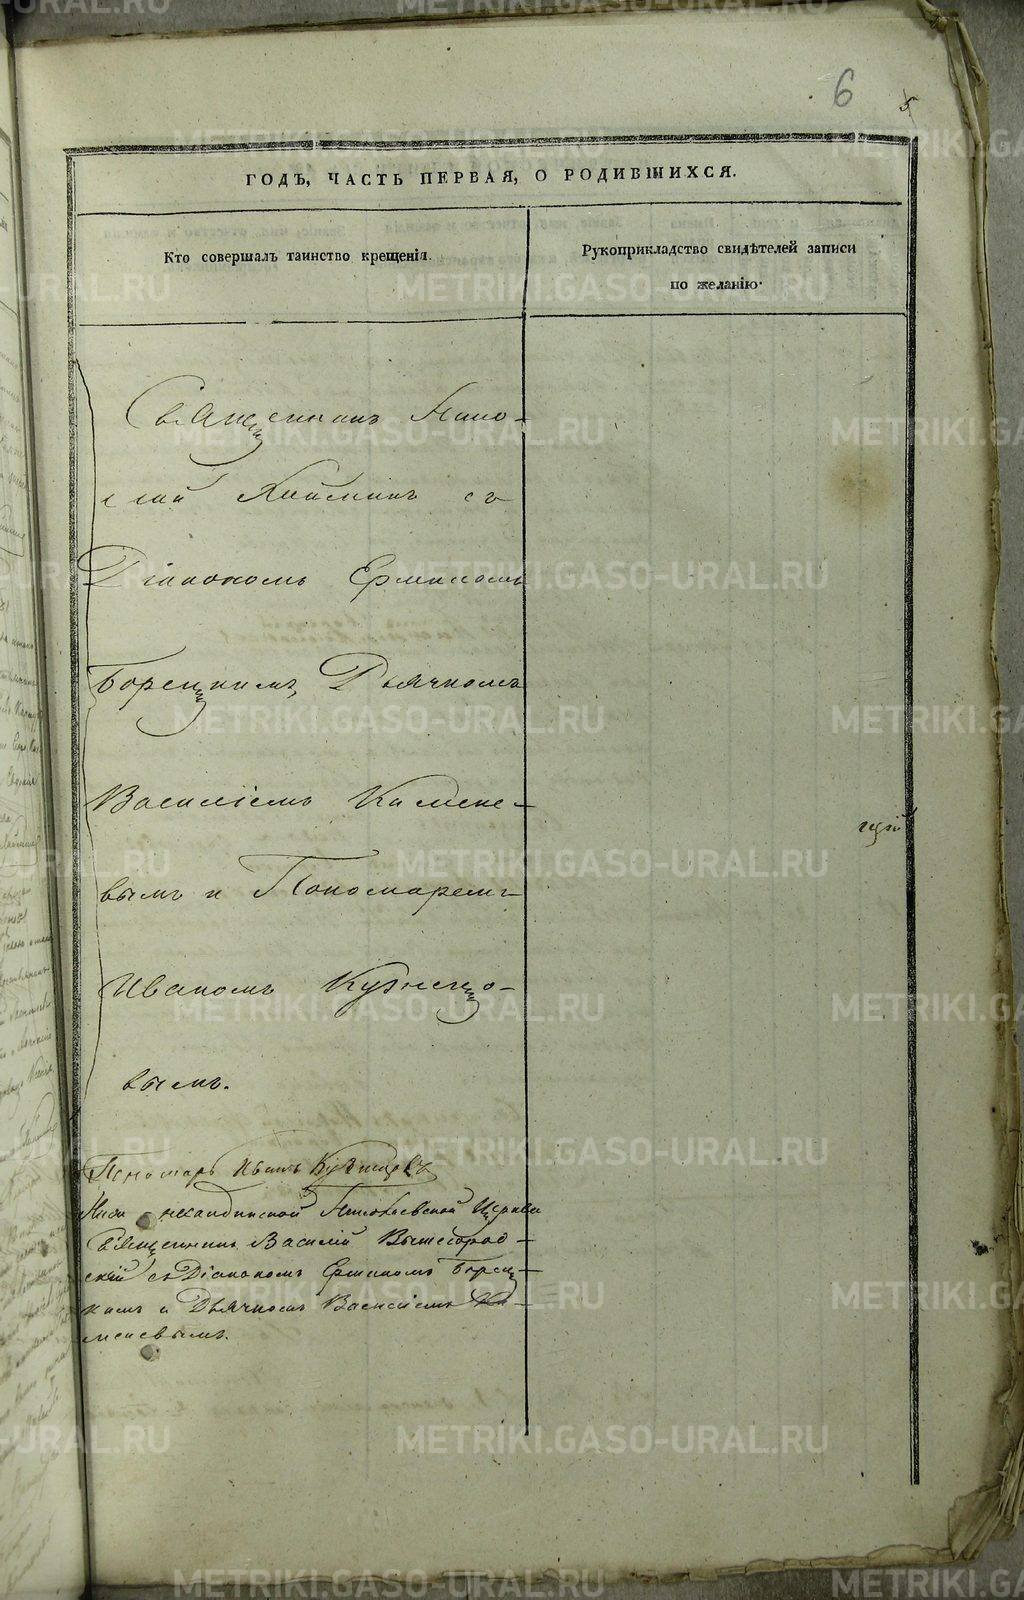 6 5
ГОДЪ, ЧАСТЬ ПЕРВАЯ, О РОДИВШИХСЯ.
Кто совершалъ таинство крещенія.
Рукоприкладство свидѣтелей записи
по желанію.
Священникъ Нико-
лай съ
Діакономъ Ермиломъ
Борецкимъ, Дьячкомъ
Василіемъ Камене-
вымъ и Пономаремъ
Иваномъ Кузнецо-
вымъ.
щій
Пономарь Иванъ Кузнецовъ
Николаевской Церкви
Священникъ Василій Вышегород-
скій съ Діакономъ Ермиломъ Борец-
кимъ и Дьячкомъ Василіемъ Ка-
меневымъ.
METRIKI.GASO-URAL.RU